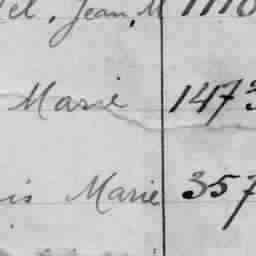 el. Jean. M 1110
Marie 1473
is Marie 357